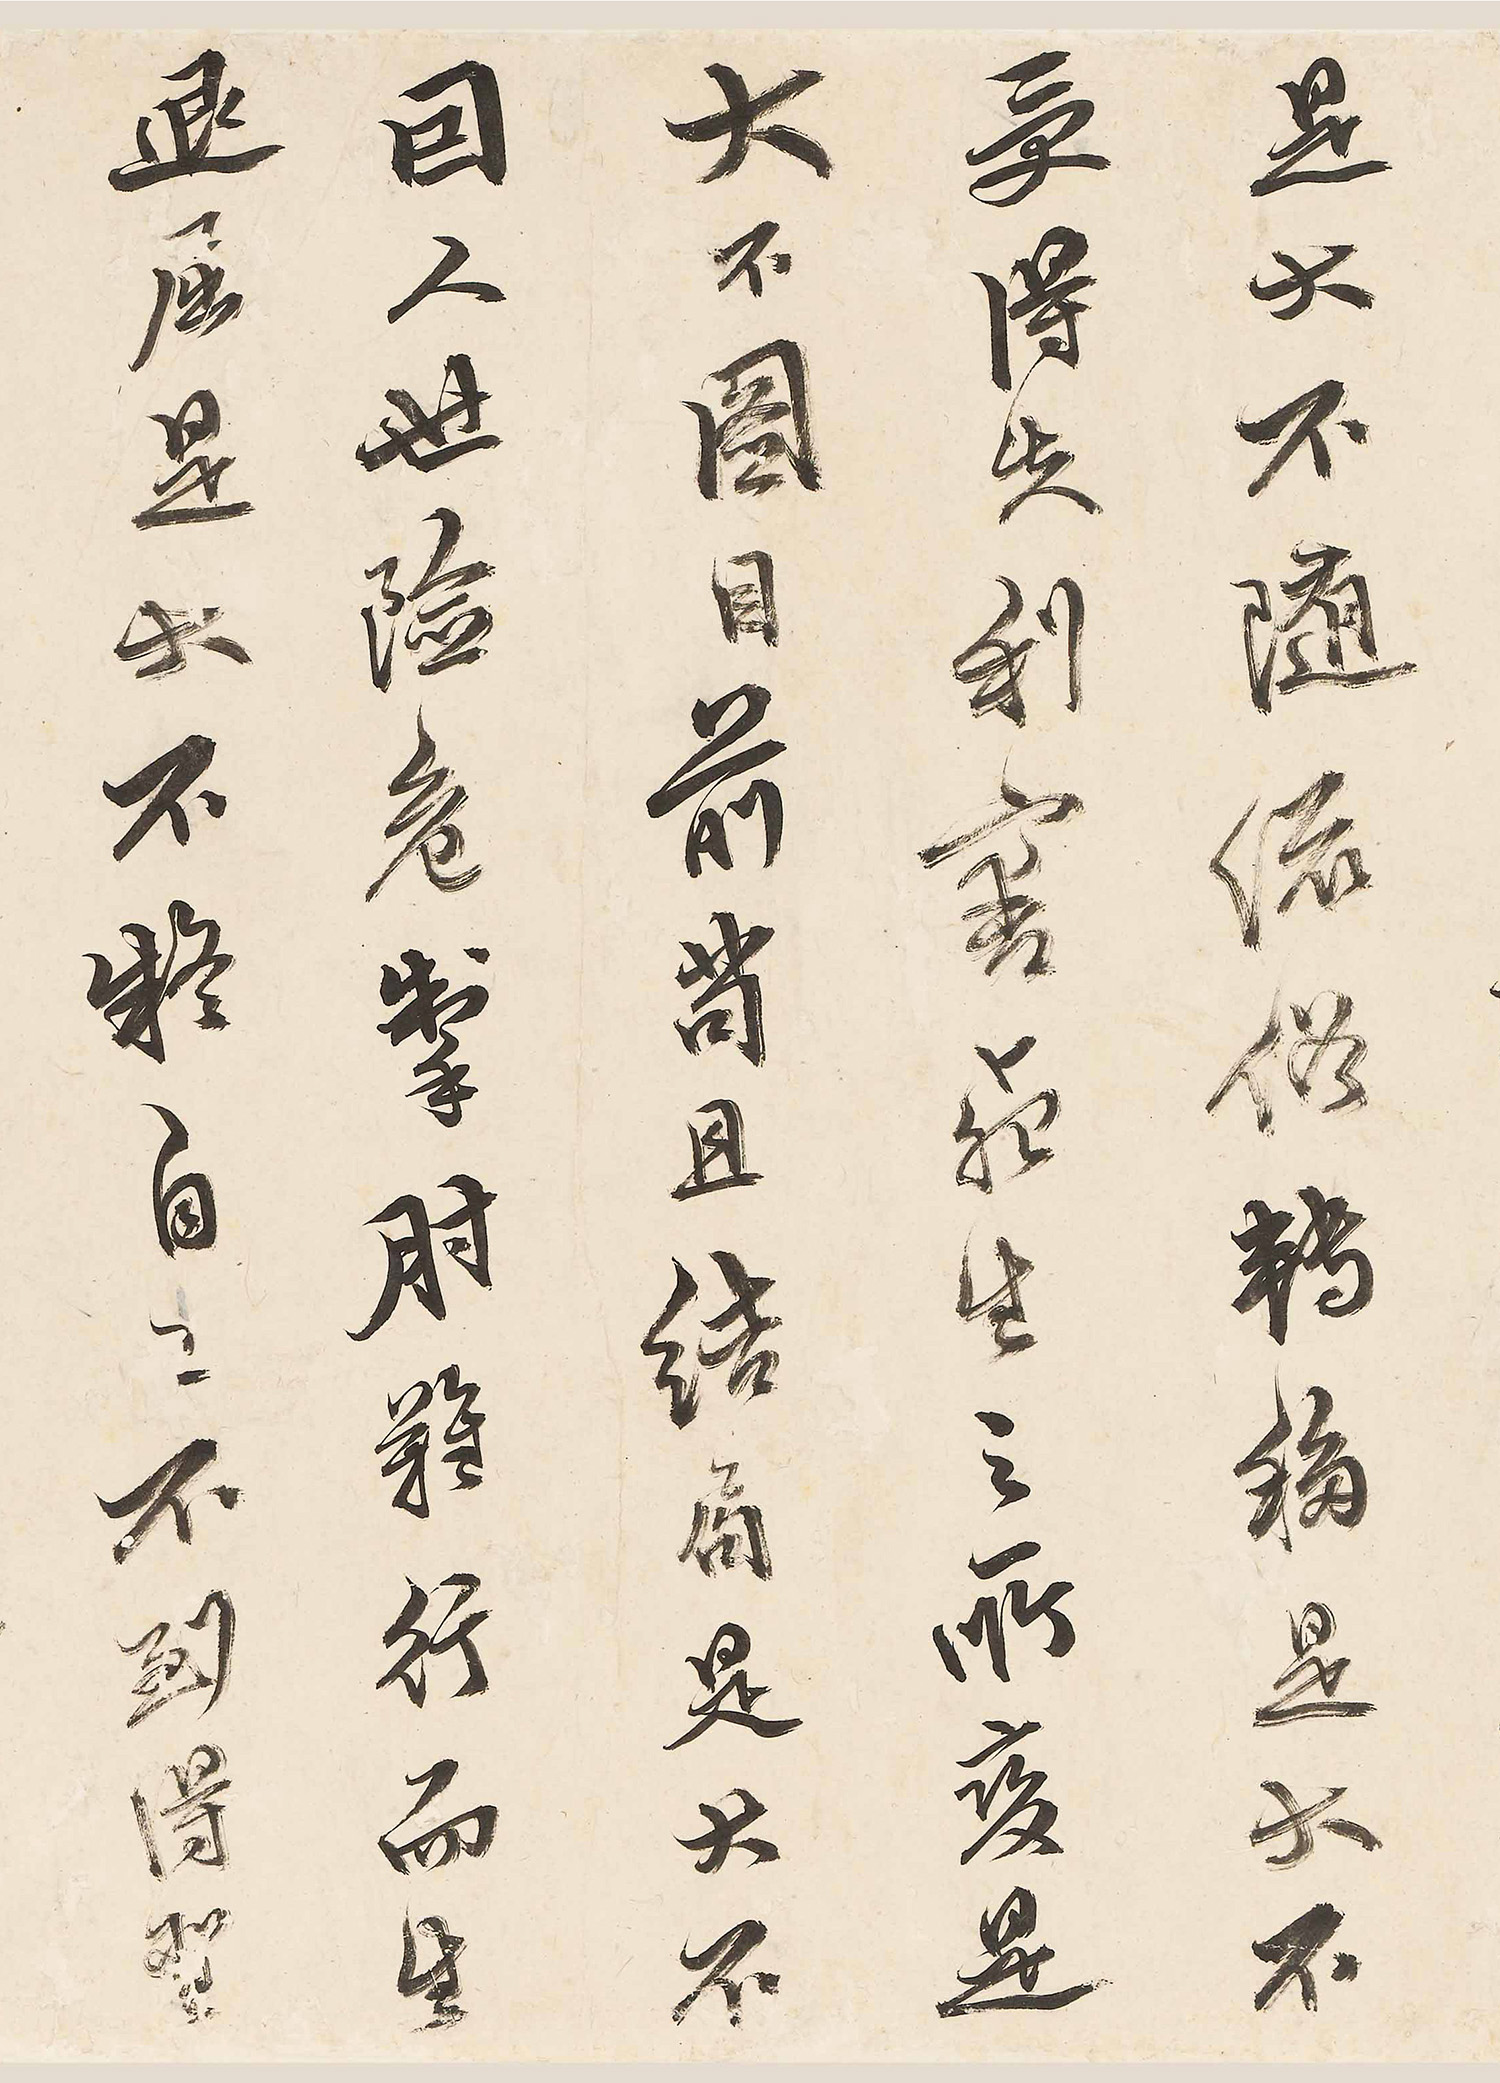 是大不随流俗轉移是大不
受得失利害死生之所變是
大不圖目前苟且結局是大不
因人世險危掣肘難行而生
退屈是大不疑自己不到得聖